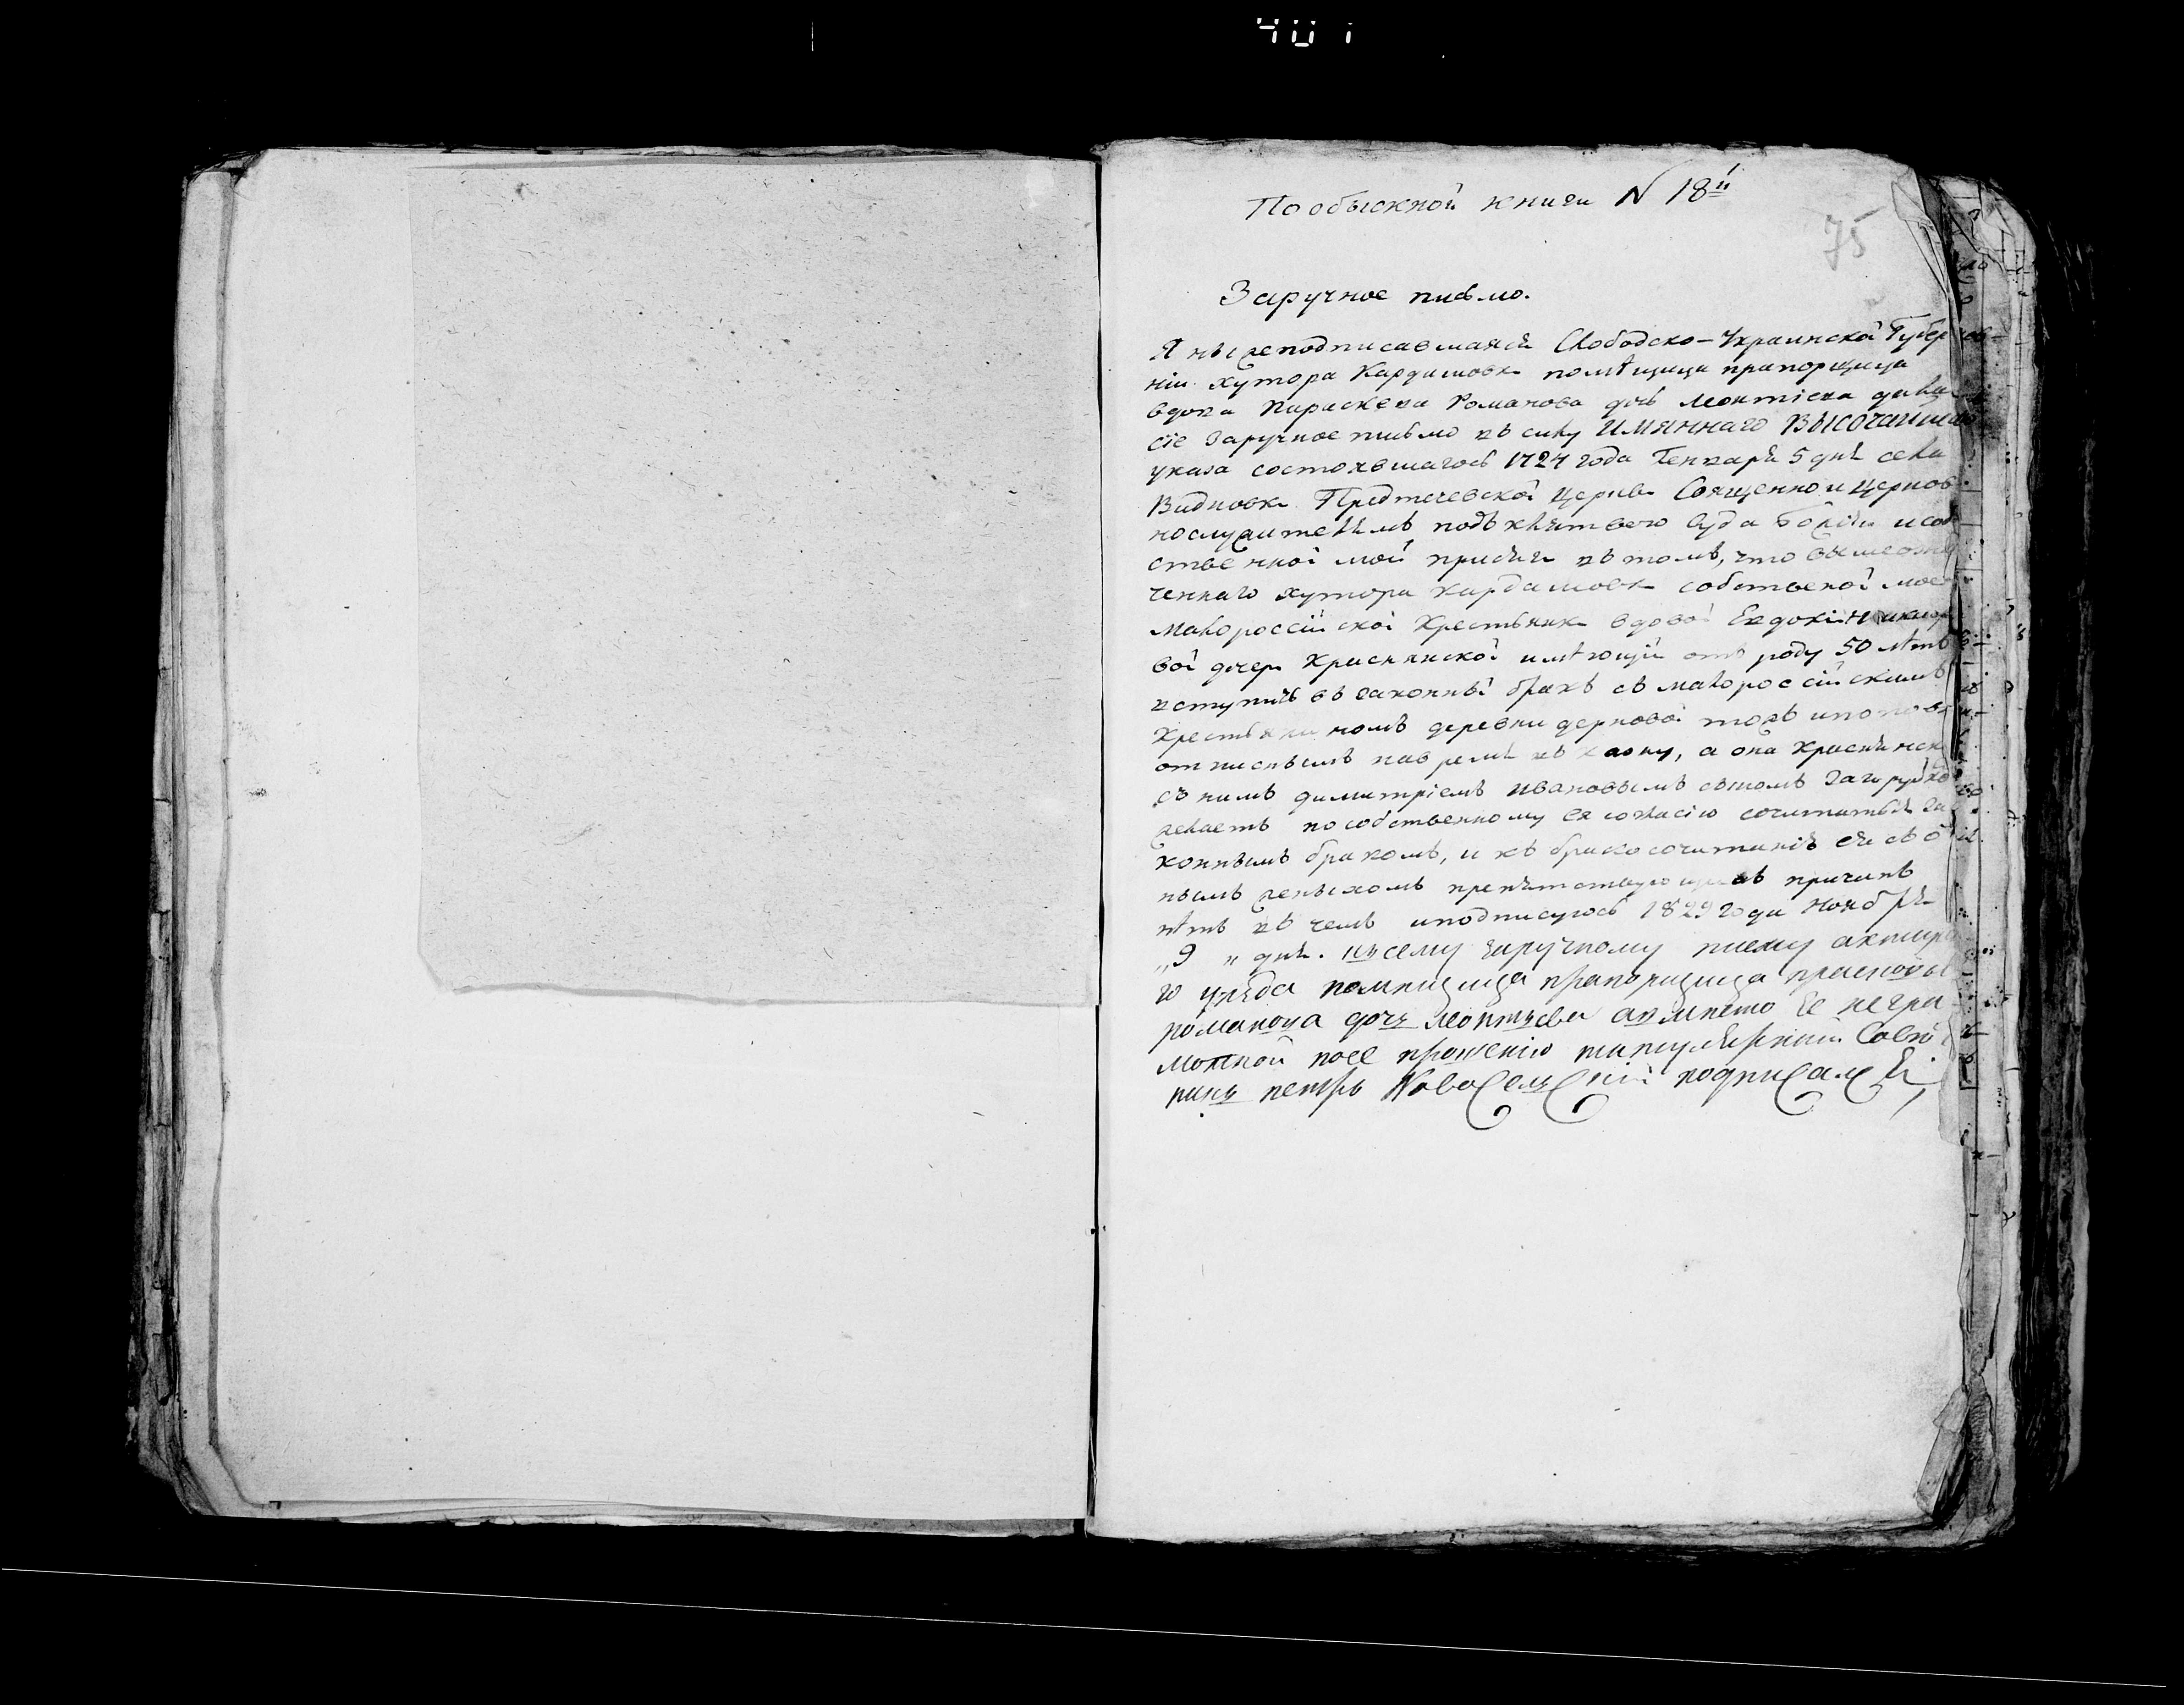 401
По обыскной книги N 18й
75
Заручное письмо.
Я нижеподписавшаяся Слободско-Украинской Губер
ніи хутора Кардашовк помѣщица прапорщица
вдова Параскева Романова дочь Леонтіева дала
сіе заручное письмо въ силу ИМЯННАГО ВЫСОЧАЙШАГО
указа состоявшагось 1724 года Генваря 5 дня села
Видновки Предтечевской Церкви Священно и Церков
нослужителямъ подъ клятвою Суда Божія и соб
ственной моей присяги въ томъ, что вышеозна
ченнаго хутора Кардашовк собственой моей
Малороссійской Крестьянк вдовой Евдокіи
вой дочери Краснянской имѣющей отъ роду 50 лѣтъ
вступить въ законный бракъ съ малороссійскимъ
Крестьяниномъ деревни дерновой
отписнымъ навремя въ казну, а она Краснянск
съ нимъ Димитріемъ Ивановымъ сыномъ Загоруйко
желаетъ пособственному ея согласію сочитаться за
коннымъ бракомъ, и къ бракосочитанію ея съ о
нымъ женихомъ препятствующихъ причинъ
нѣтъ въ чемъ иподписуюсь 1829 года Ноября
„9 „ дня. Къ сему заручному писму ахтирс
го уѣзда помпщица прапорщица прасковья
романова дочь леонтьева авмпсто Ее негра
мотной поее прошенію титулярный Совѣ
никъ петръ НовоСелъСкій подписалСя